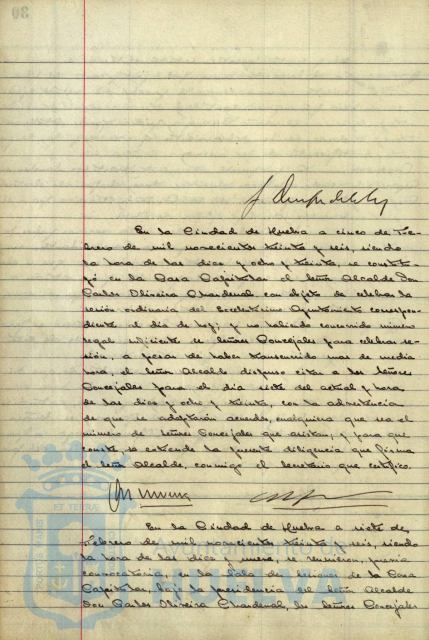 En la Ciudad de Huelva a cinco de Fe-
brero de mil novecientos treinta y seis, siendo
la hora de las diez y ocho y treinta, se constitu-
yó en la Casa Capitular el Señor Alcalde Don
Carlos Oliveira Chardenal con objeto de celebrar la
sesión ordinaria del Excelentísimo Ayuntamiento correspon-
diente al día de hoy; y no habiendo concurrido número
legal suficiente de Señores Concejales para celebrar se-
sión, a pesar de haber transcurrido mas de media
hora, el Señor Alcalde dispuso citar a los Señores
Concejales para el día siete del actual y hora
de las diez y ocho y treinta, con la advertencia
de que se adoptarán acuerdos, cualquiera que sea el
número de Señores Concejales que asistan; y para que
conste, se extiende la presente diligencia que firma
el Señor Alcalde, conmigo el Secretario que certifico.
En la Ciudad de Huelva a siete de
Febrero de mil novecientos treinta y seis, siendo
la hora de las diez y nueve, se reunieron, previa
convocatoria, en la Sala de sesiones de la Casa
Capitular, bajo la Presidencia del Señor Alcalde
Don Carlos Oliveira Chardenal, los Señores Concejales